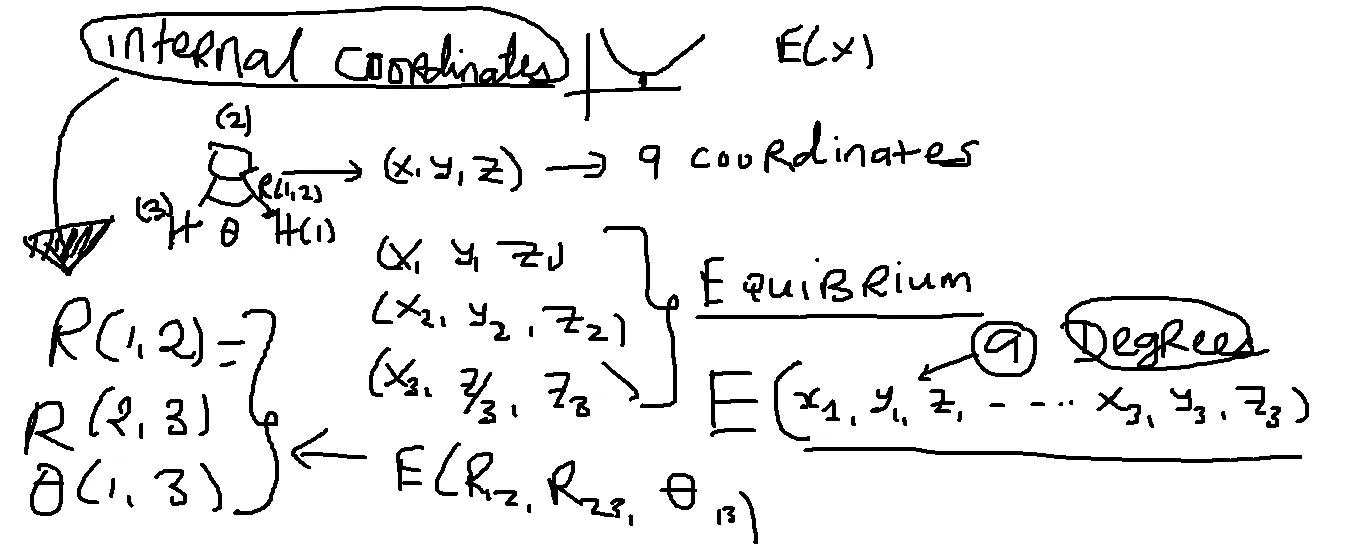 internal coordinates E(x)
(2)
(x, y, z) → 9 coordinates
R(1,2)
(3) H θ H(1)
(x, y, z1)
(x2, y2, z2)
(x3, z/3, z3
EquiBRium
9 DegRees
E(x1, y1, z1 - - ... x3, y3, z3)
R(1,2)=
R(2,3)
θ(1,3)
← E(R12, R23, θ13)